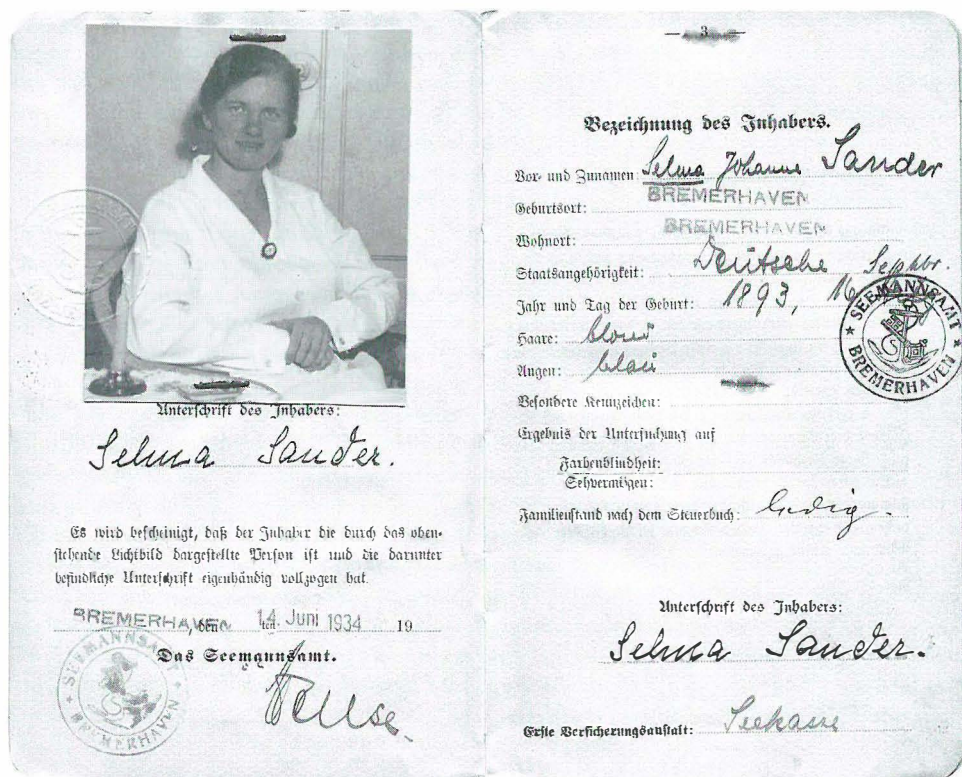 Unterschrift des Inhabers:
Selma Sander.
Es wird bescheinigt, daß der Inhaber die durch das oben-
stehende Lichtbild dargestellte Person ist und die darunter
befindliche Unterschrift eigenhändig vollzogen hat.
BREMERHAVEN, den 14. Juni 1934 19
Das Seemannsamt.
SEEMANNSAMT
BREMERHAVEN
— 3 —
Bezeichnung des Inhabers.
Vor- und Zunamen: Selma Johanne Sander
Geburtsort: BREMERHAVEN
Wohnort: BREMERHAVEN
Staatsangehörigkeit: Deutsche
Jahr und Tag der Geburt: 1893, 16. Septbr.
Haare: blond
Augen: blau
SEEMANNSAMT
BREMERHAVEN
Besondere Kennzeichen:
Ergebnis der Untersuchung auf
Farbenblindheit:
Sehvermögen:
Familienstand nach dem Steuerbuch: ledig.
Unterschrift des Inhabers:
Selma Sander.
Erste Versicherungsanstalt: Seekasse